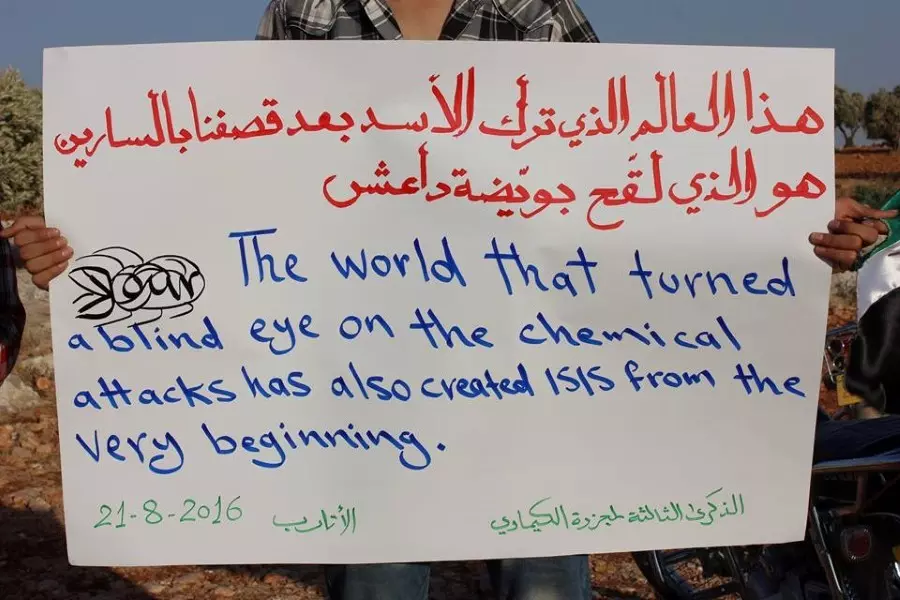 هذا العالم الذي ترك الأسد بعد قصفنا بالسارين
هو الذي لقَح بويّضة داعش
The world that turned
a blind eye on the chemical
attacks has also created ISIS from the
very beginning.
الذكرى الثالثة لمجزرة الكيماوي
الأتارب 21-8-2016